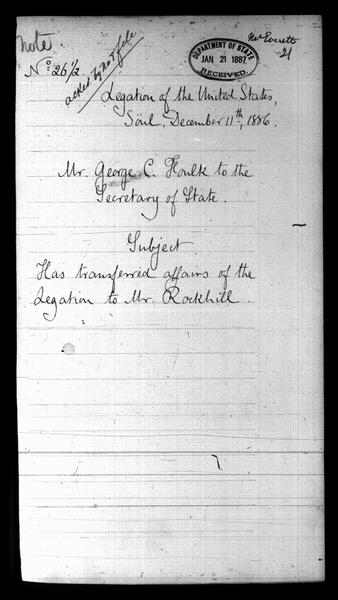 note.
Mr Everett
21
DEPARTMENT OF STATE
JAN 21 1887
RECEIVED
No. 26 1/2
acked by
Legation of the United States,
Söul, December 11th, 1886.
Mr. George C. Foulk to the
Secretary of State.
Subject
Has transferred affairs of the
Legation to Mr. Rockhill.